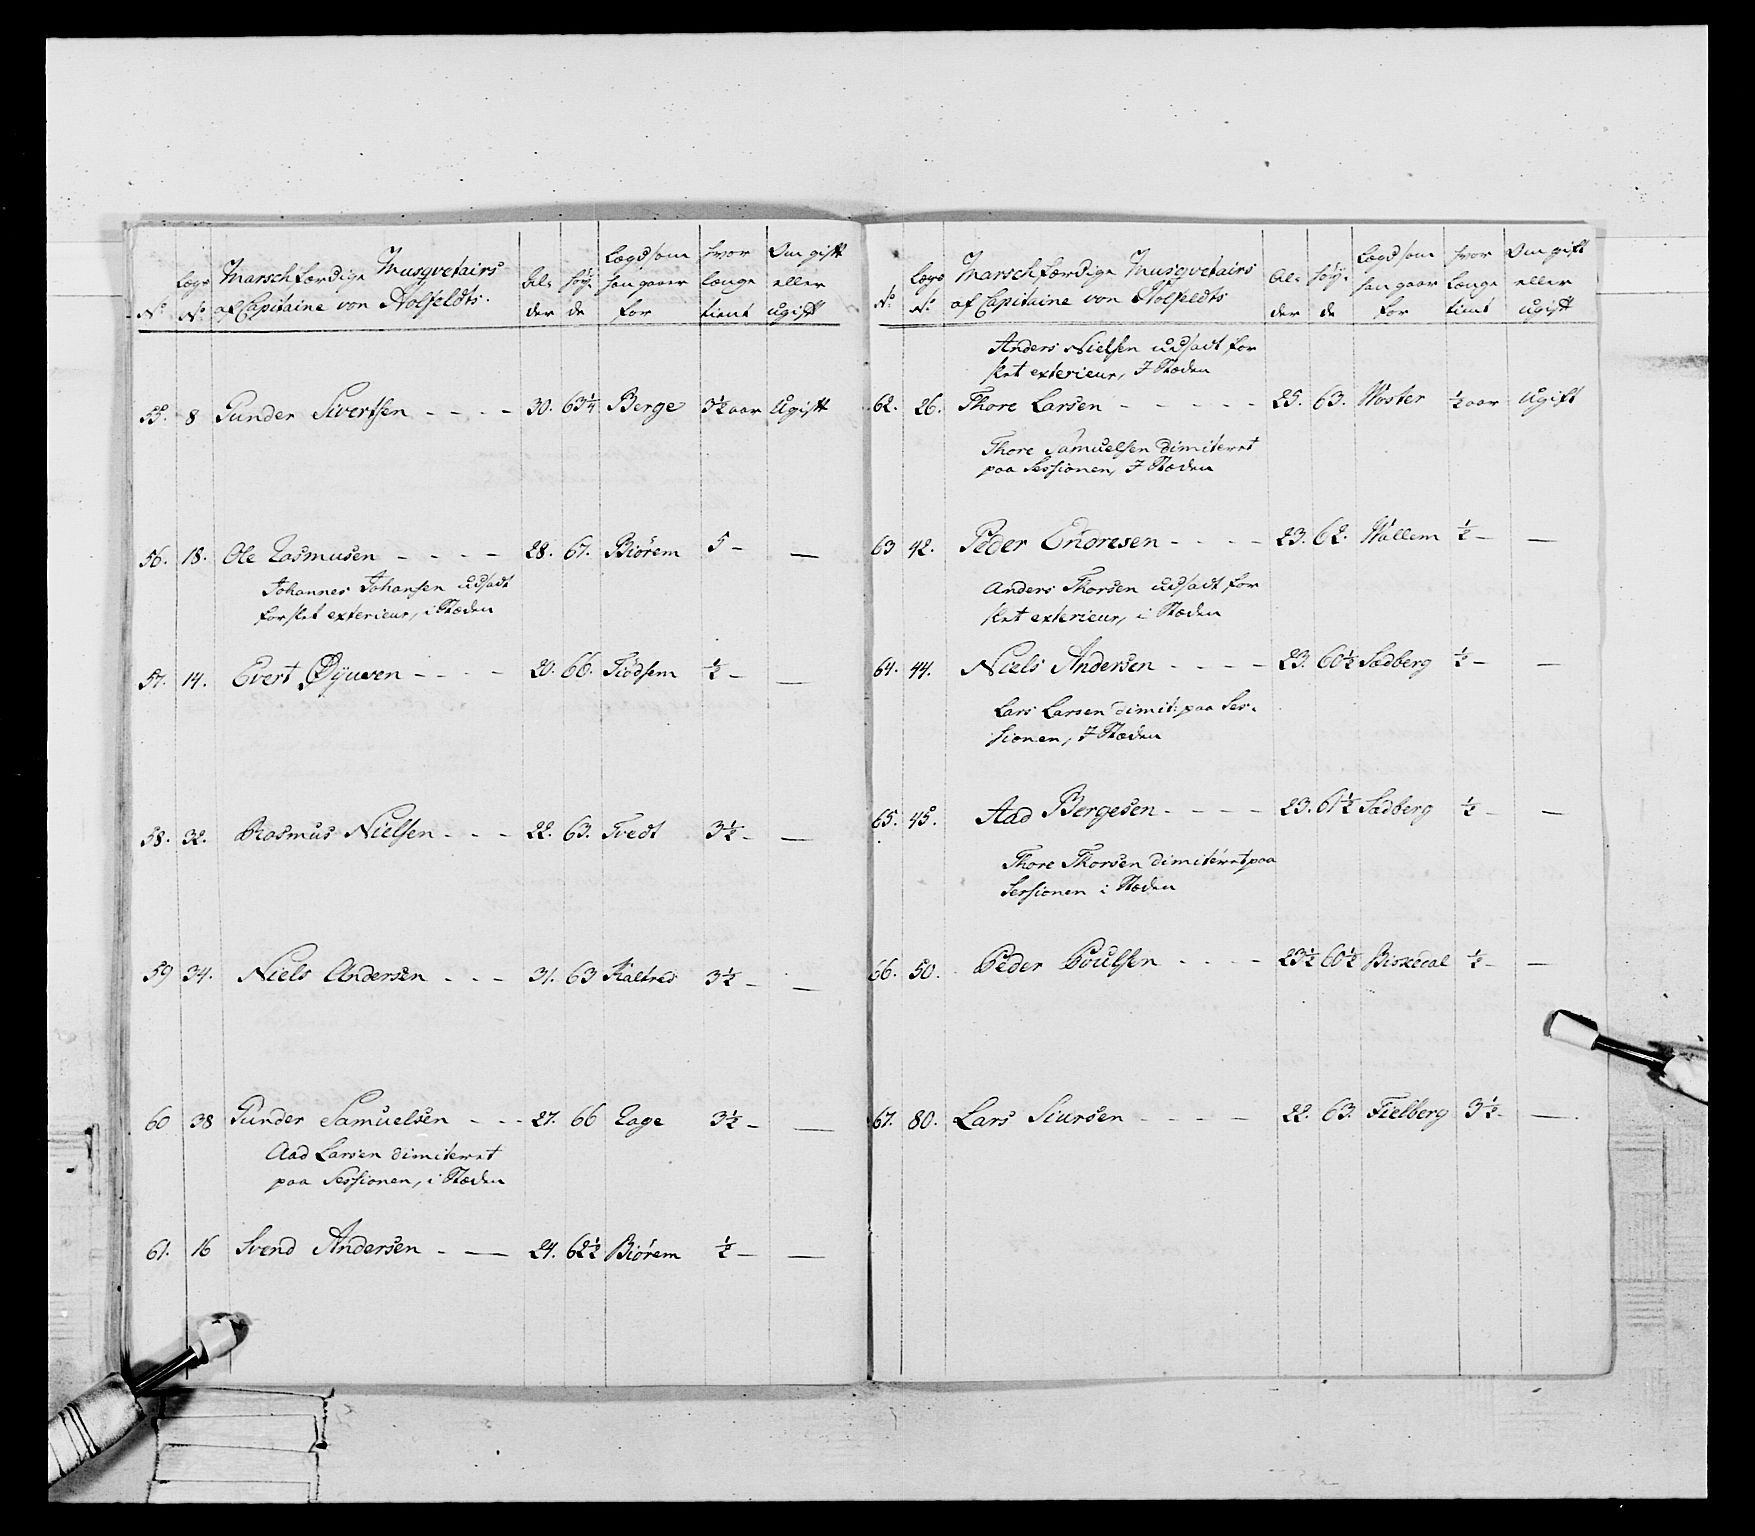 No
Lægs No
Marschfærdige Musqvetairs
af Capitaine von Holfeldts.
Al-
der
Høy-
de
Lægd som
han gaaer
for
hvor
længe
tient
Om gift
eller
ugift
55. 8 Gunder Sivertsen - - - - 30. 63¼ Berge 3½ aar Ugift
56. 18. Ole Rasmusen - - - - 28. 67. Biörem 5 - —
Johannes Johansen udsadt
for slet exterieur, i Stæden
57. 14. Evert Øÿuven - - - - 20. 66. Tiödsem ½ - —
58. 32. Rasmus Nielsen - - - 22. 63. Tvedt 3½ - —
59 34. Niels Andersen - - - 31. 63 Kaltved 3½ - —
60 38 Gunder Samuelsen - - - 27. 66 Rage 3½ - —
Aad Larsen dimiteret
paa Sessionen, i Stæden
61. 16 Svend Andersen - — 24. 62½ Biörem ½ - —
No
Lægs No
Marschfærdige Musqvetairs
af Capitaine von Holfeldts
Al-
der
Høy-
de
Lægd som
han gaar
for
hvor
længe
tient
Om gift
eller
ugift
Anders Nielsen udsadt for
slet exterieur, I Stæden
62. 26. Thore Larsen - - - - - 25. 63. Wöster ½ aar Ugift
Thore Samuelsen dimiteret
paa Sessionen, I Stæden
63 42. Peder Endresen - - - - 23. 62. Wallem ½ - —
Anders Thorsen udsadt for
slet exterieur, i Stæden
64. 44. Niels Andersen - - - - 23. 60½ Sædberg ½ - —
Lars Larsen dimit: paa Ses-
sionen, I Stæden
65. 45. Aad Bergesen - - - - 23. 61½ Sædberg ½ - —
Thore Thorsen dimiteret paa
Sessionen i Stæden
66. 50. Peder Poulsen - - - - 23½ 60½ ½ - —
67. 80. Lars Siursen - - - - 22. 63. Fielberg 3½ - —